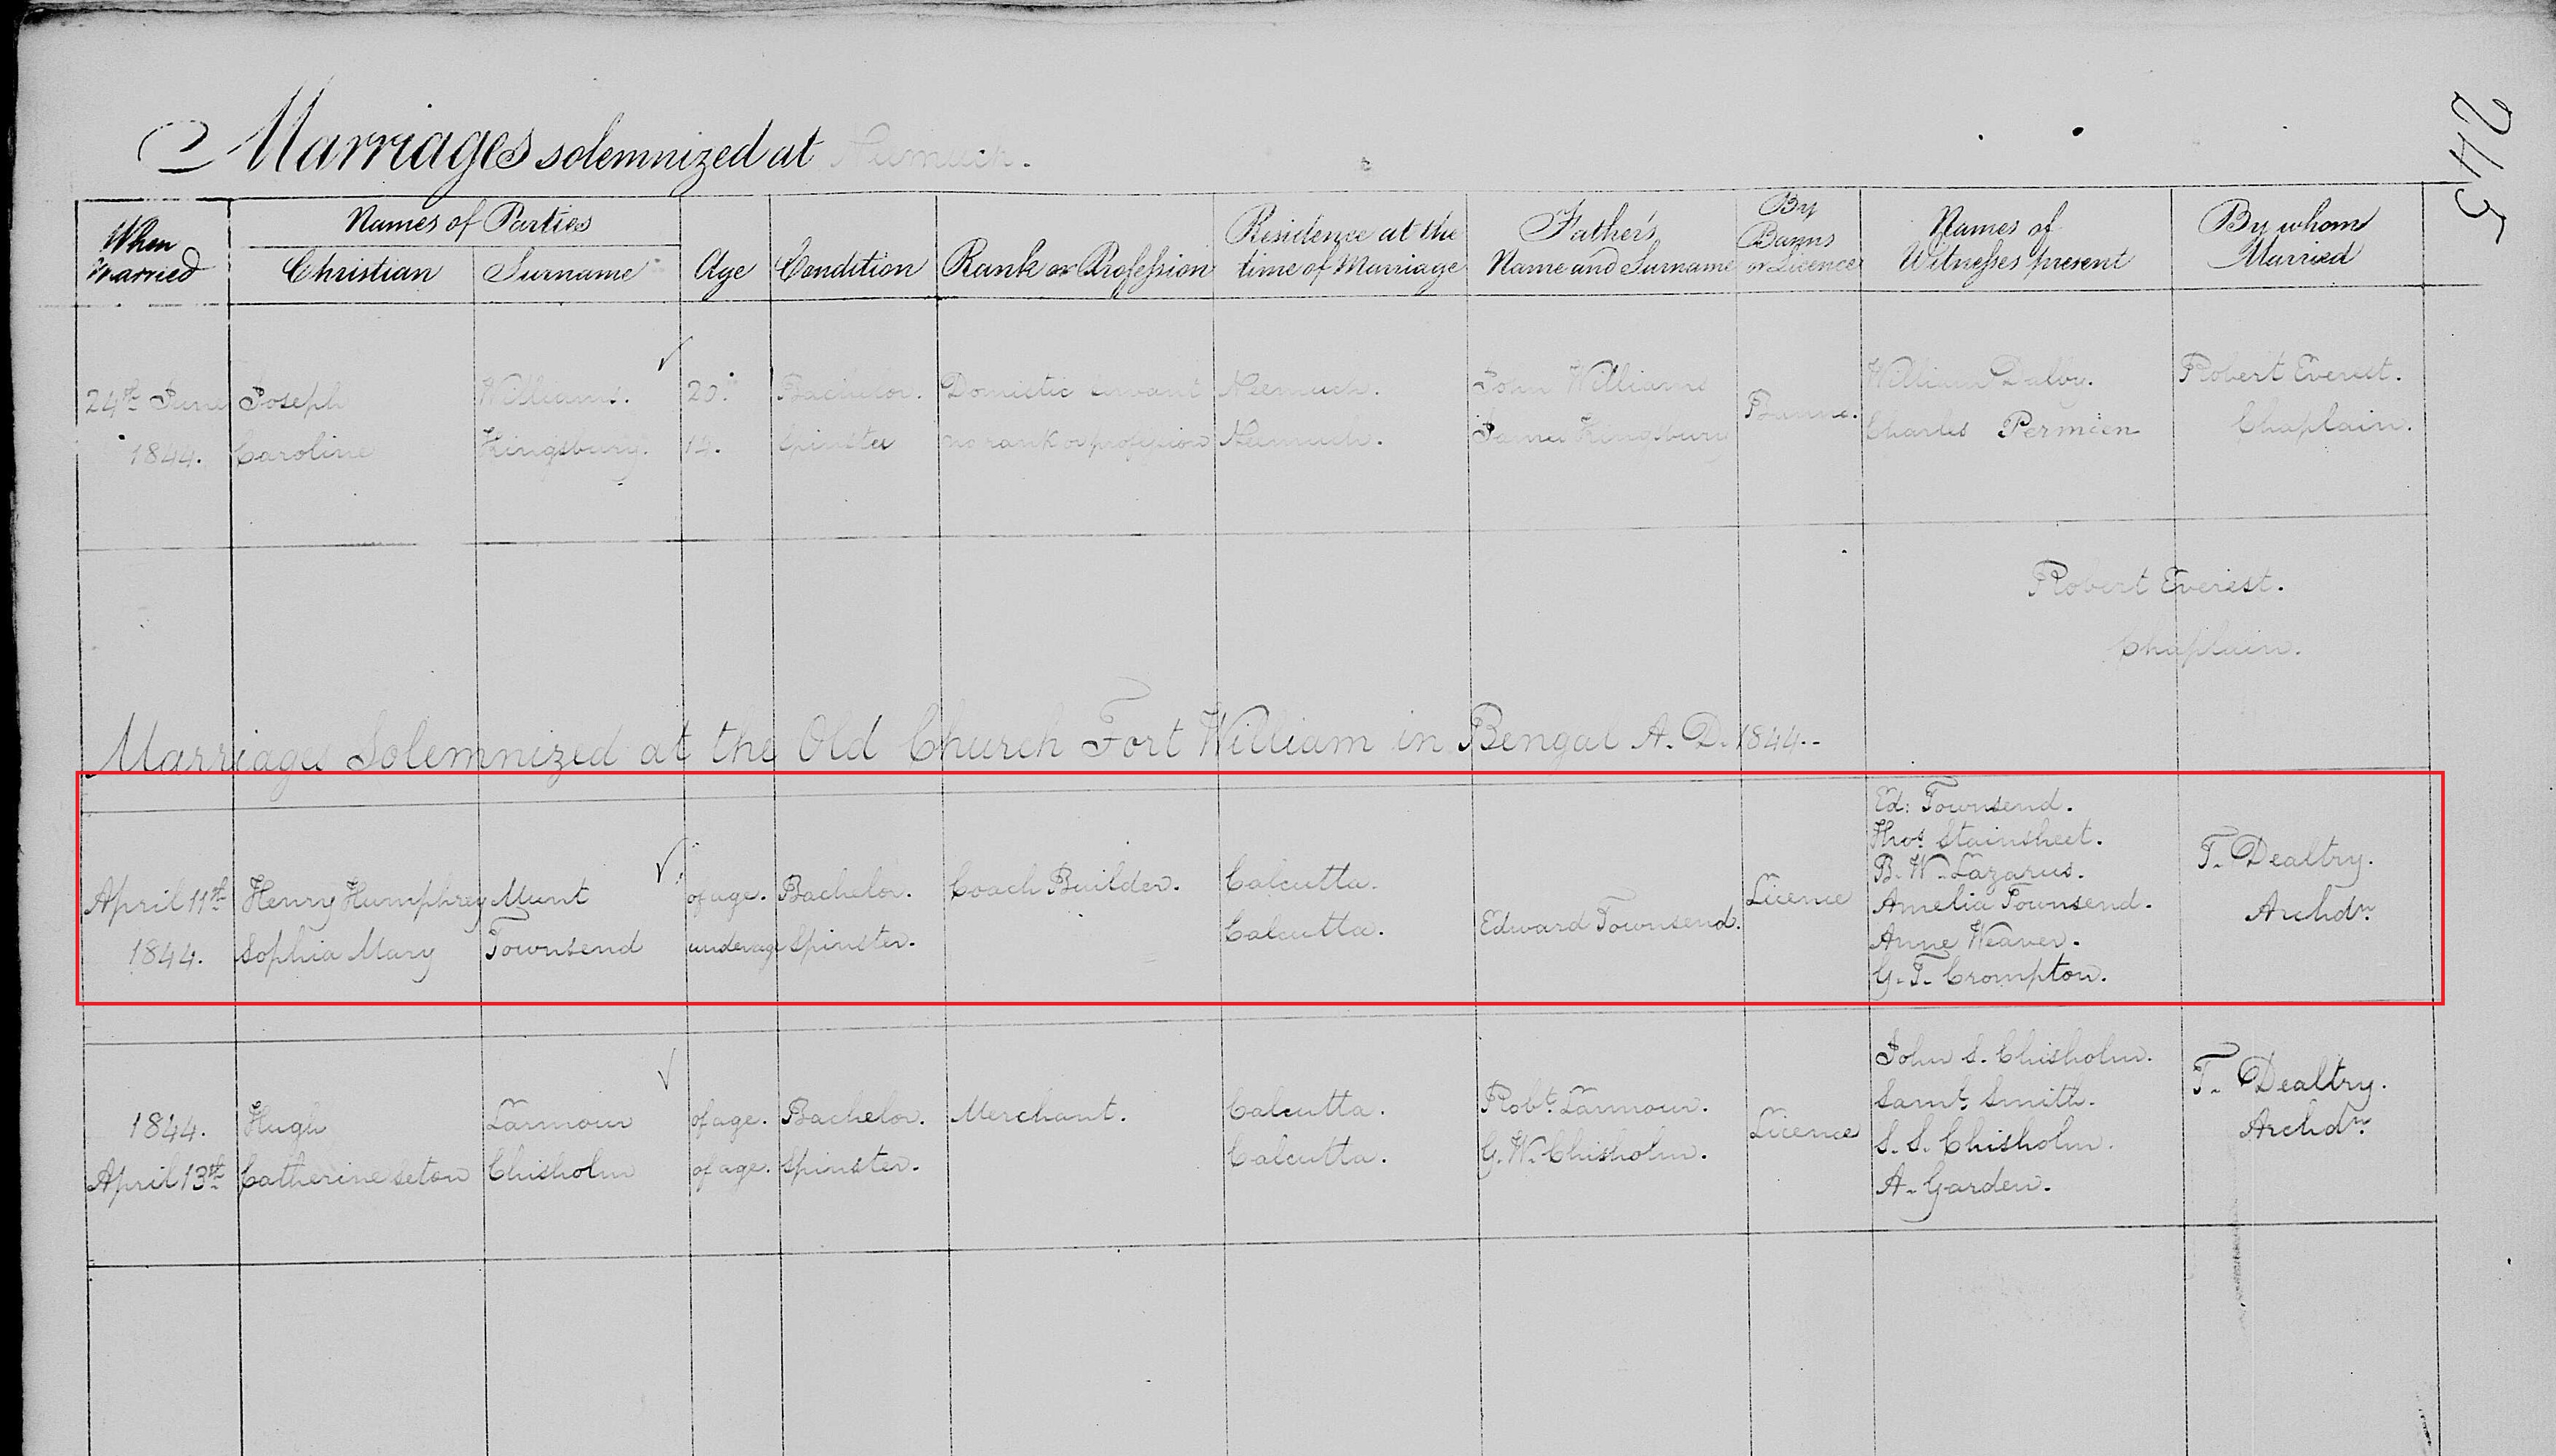 245
Marriages solemnized at Neemuch.
When Married
Names of Parties
Christian
Surname
Age
Condition
Rank or Profession
Residence at the
time of Marriage
Father's
Name and Surname
By
Banns
or Licence
Names of
Witnesses present
By whom
Married
24th June Joseph Williams. 20. Bachelor. Domestic servant Neemuch. John Williams Banns. William Dalby. Robert Everest.
1844. Caroline Kingsbury. Spinster no rank or profession Neemuch. James Kingsbury Charles Permien Chaplain.
Robert Everest.
Chaplain.
Marriages Solemnized at the Old Church Fort William in Bengal A. D. 1844.-
Ed: Townsend.
Thos. Stainsheet.
B. W. Lazarus.
April 11th Henry Humphrey Munt of age. Bachelor. Coach Builder. Calcutta. Licence Amelia Townsend. T. Dealtry.
1844. Sophia Mary Townsend underage Spinster. Calcutta. Edward Townsend. Anne Weaver. Archdn.
G. T. Crompton.
John S. Chisholm.
Saml. Smith.
1844. Hugh Larmour of age. Bachelor. Merchant. Calcutta. Robt. Larmour. Licence S. S. Chisholm. T. Dealtry.
April 13th Catherine Seton Chisholm of age. Spinster. Calcutta. G. W. Chisholm. A. Garden. Archdn.